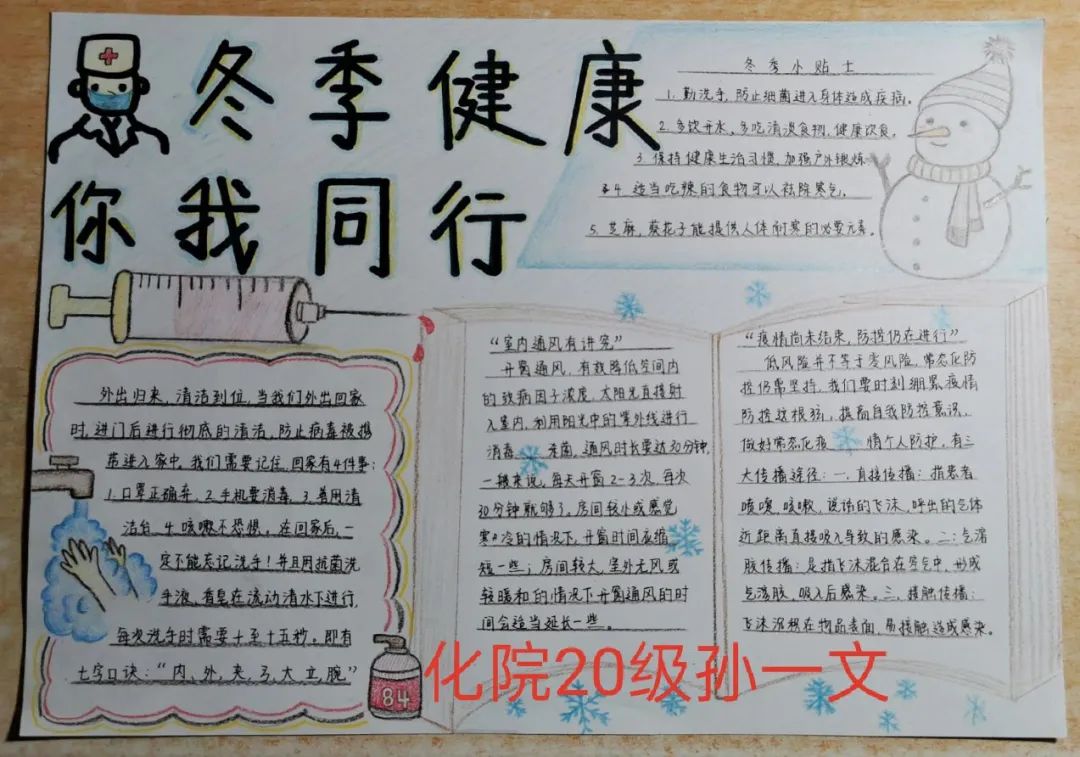 冬季健康
你我同行
冬季小贴士
1. 勤洗手，防止细菌进入身体造成疾病。
2. 多饮开水，多吃清淡食物，健康饮食。
3. 保持健康生活习惯，加强户外锻炼
4. 适当吃辣的食物可以祛除寒气，
5. 芝麻，葵花子能提供人体耐寒的必要元素。
外出归来，清洁到位，当我们外出回家
时，进门后进行彻底的清洁，防止病毒被携
带进入家中，我们需要记住，回家有4件事：
1. 口罩正确弃，2. 手机要消毒，3. 善用清
洁台，4. 咳嗽不恐惧。在回家后，一
定不能忘记洗手！并且用抗菌洗
手液，香皂在流动清水下进行，
每次洗手时需要十至十五秒。即有
七字口诀：“内、外、夹、弓、大、立、腕”
84
“室内通风有讲究”
开窗通风，有效降低空间内
的致病因子浓度，太阳光直接射
入室内，利用阳光中的紫外线进行
消毒 杀菌，通风时长要达30分钟，
一般来说，每天开窗2-3次，每次
30分钟就够了。房间较小或感觉
寒冷的情况下，开窗时间应缩
短一些；房间较大，室外无风或
较暖和的情况下开窗通风的时
间会适当延长一些。
“疫情尚未结束，防控仍在进行”
低风险并不等于零风险，常态化防
控仍需坚持，我们要时刻绷紧疫情
防控这根弦，提高自我防控意识，
做好常态化疫 情个人防护，有三
大传播途径：一. 直接传播：指患者
喷嚏，咳嗽，说话的飞沫，呼出的气体
近距离直接吸入导致的感染。二：气溶
胶传播：是指飞沫混合在空气中，形成
气溶胶，吸入后感染。三、接触传播：
飞沫沉积在物品表面，易接触造成感染。
化院20级孙一文